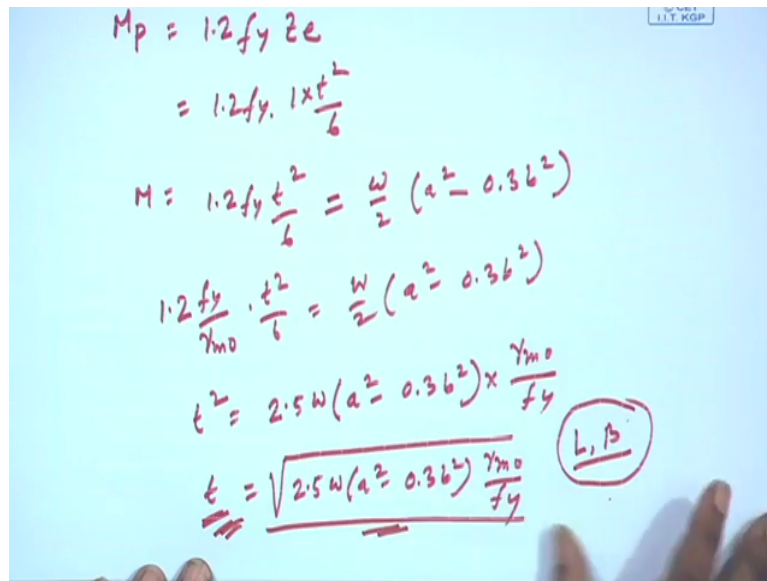 © CET
I.I.T. KGP
Mp = 1.2 fy Ze
= 1.2 fy. 1×t²/6
M = 1.2 fy t²/6 = w/2 (a² - 0.3b²)
1.2 fy/γmo . t²/6 = w/2 (a² - 0.3b²)
t² = 2.5 w (a² - 0.3b²) × γmo/fy
L, B
t = √(2.5 w (a² - 0.3b²) γmo/fy)